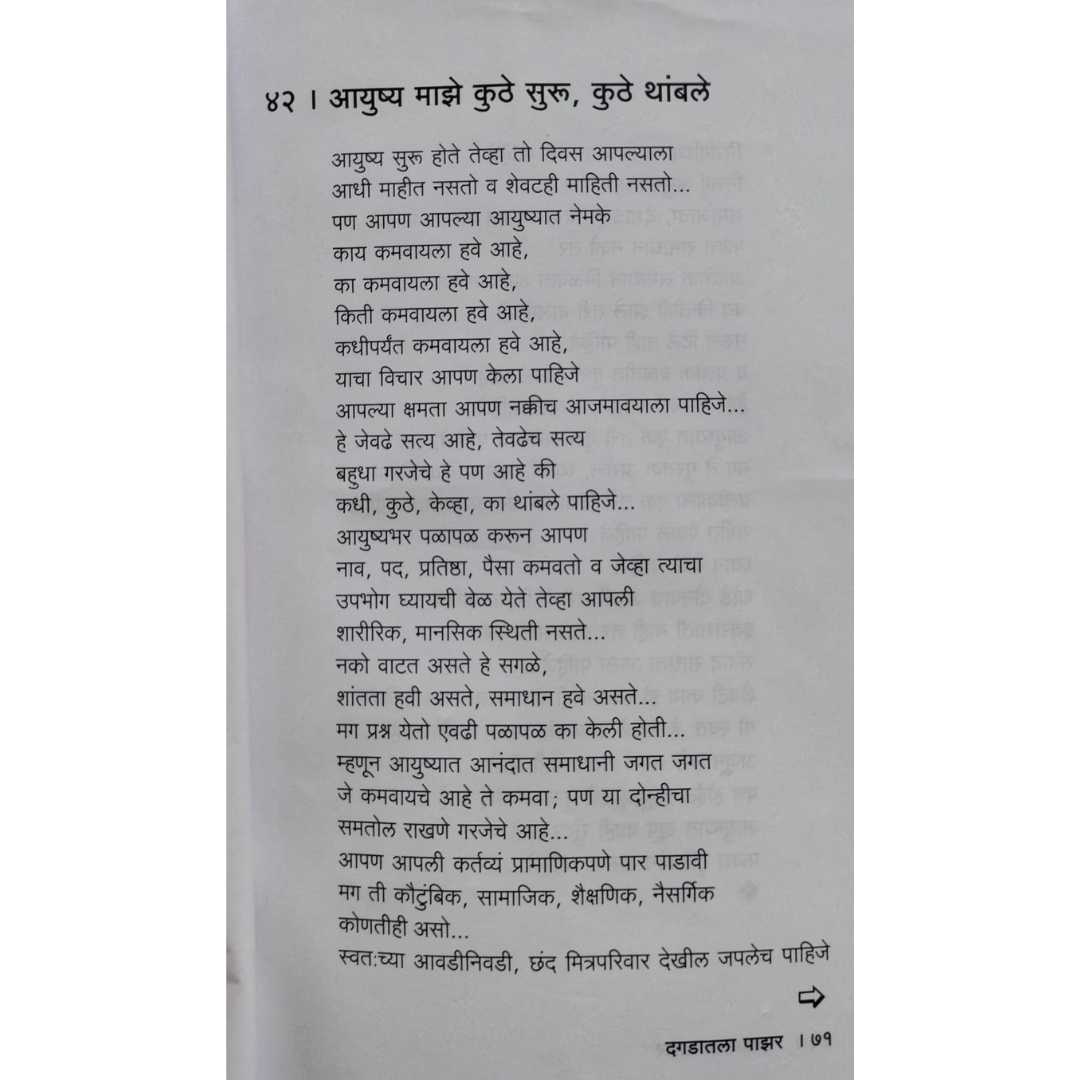 ४२ । आयुष्य माझे कुठे सुरू, कुठे थांबले
आयुष्य सुरू होते तेव्हा तो दिवस आपल्याला
आधी माहीत नसतो व शेवटही माहिती नसतो...
पण आपण आपल्या आयुष्यात नेमके
काय कमवायला हवे आहे,
का कमवायला हवे आहे,
किती कमवायला हवे आहे,
कधीपर्यंत कमवायला हवे आहे,
याचा विचार आपण केला पाहिजे
आपल्या क्षमता आपण नक्कीच आजमावयाला पाहिजे...
हे जेवढे सत्य आहे, तेवढेच सत्य
बहुधा गरजेचे हे पण आहे की
कधी, कुठे, केव्हा, का थांबले पाहिजे...
आयुष्यभर पळापळ करून आपण
नाव, पद, प्रतिष्ठा, पैसा कमवतो व जेव्हा त्याचा
उपभोग घ्यायची वेळ येते तेव्हा आपली
शारीरिक, मानसिक स्थिती नसते...
नको वाटत असते हे सगळे,
शांतता हवी असते, समाधान हवे असते...
मग प्रश्न येतो एवढी पळापळ का केली होती...
म्हणून आयुष्यात आनंदात समाधानी जगत जगत
जे कमवायचे आहे ते कमवा; पण या दोन्हीचा
समतोल राखणे गरजेचे आहे...
आपण आपली कर्तव्यं प्रामाणिकपणे पार पाडावी
मग ती कौटुंबिक, सामाजिक, शैक्षणिक, नैसर्गिक
कोणतीही असो...
स्वत:च्या आवडीनिवडी, छंद मित्रपरिवार देखील जपलेच पाहिजे
दगडातला पाझर । ७१